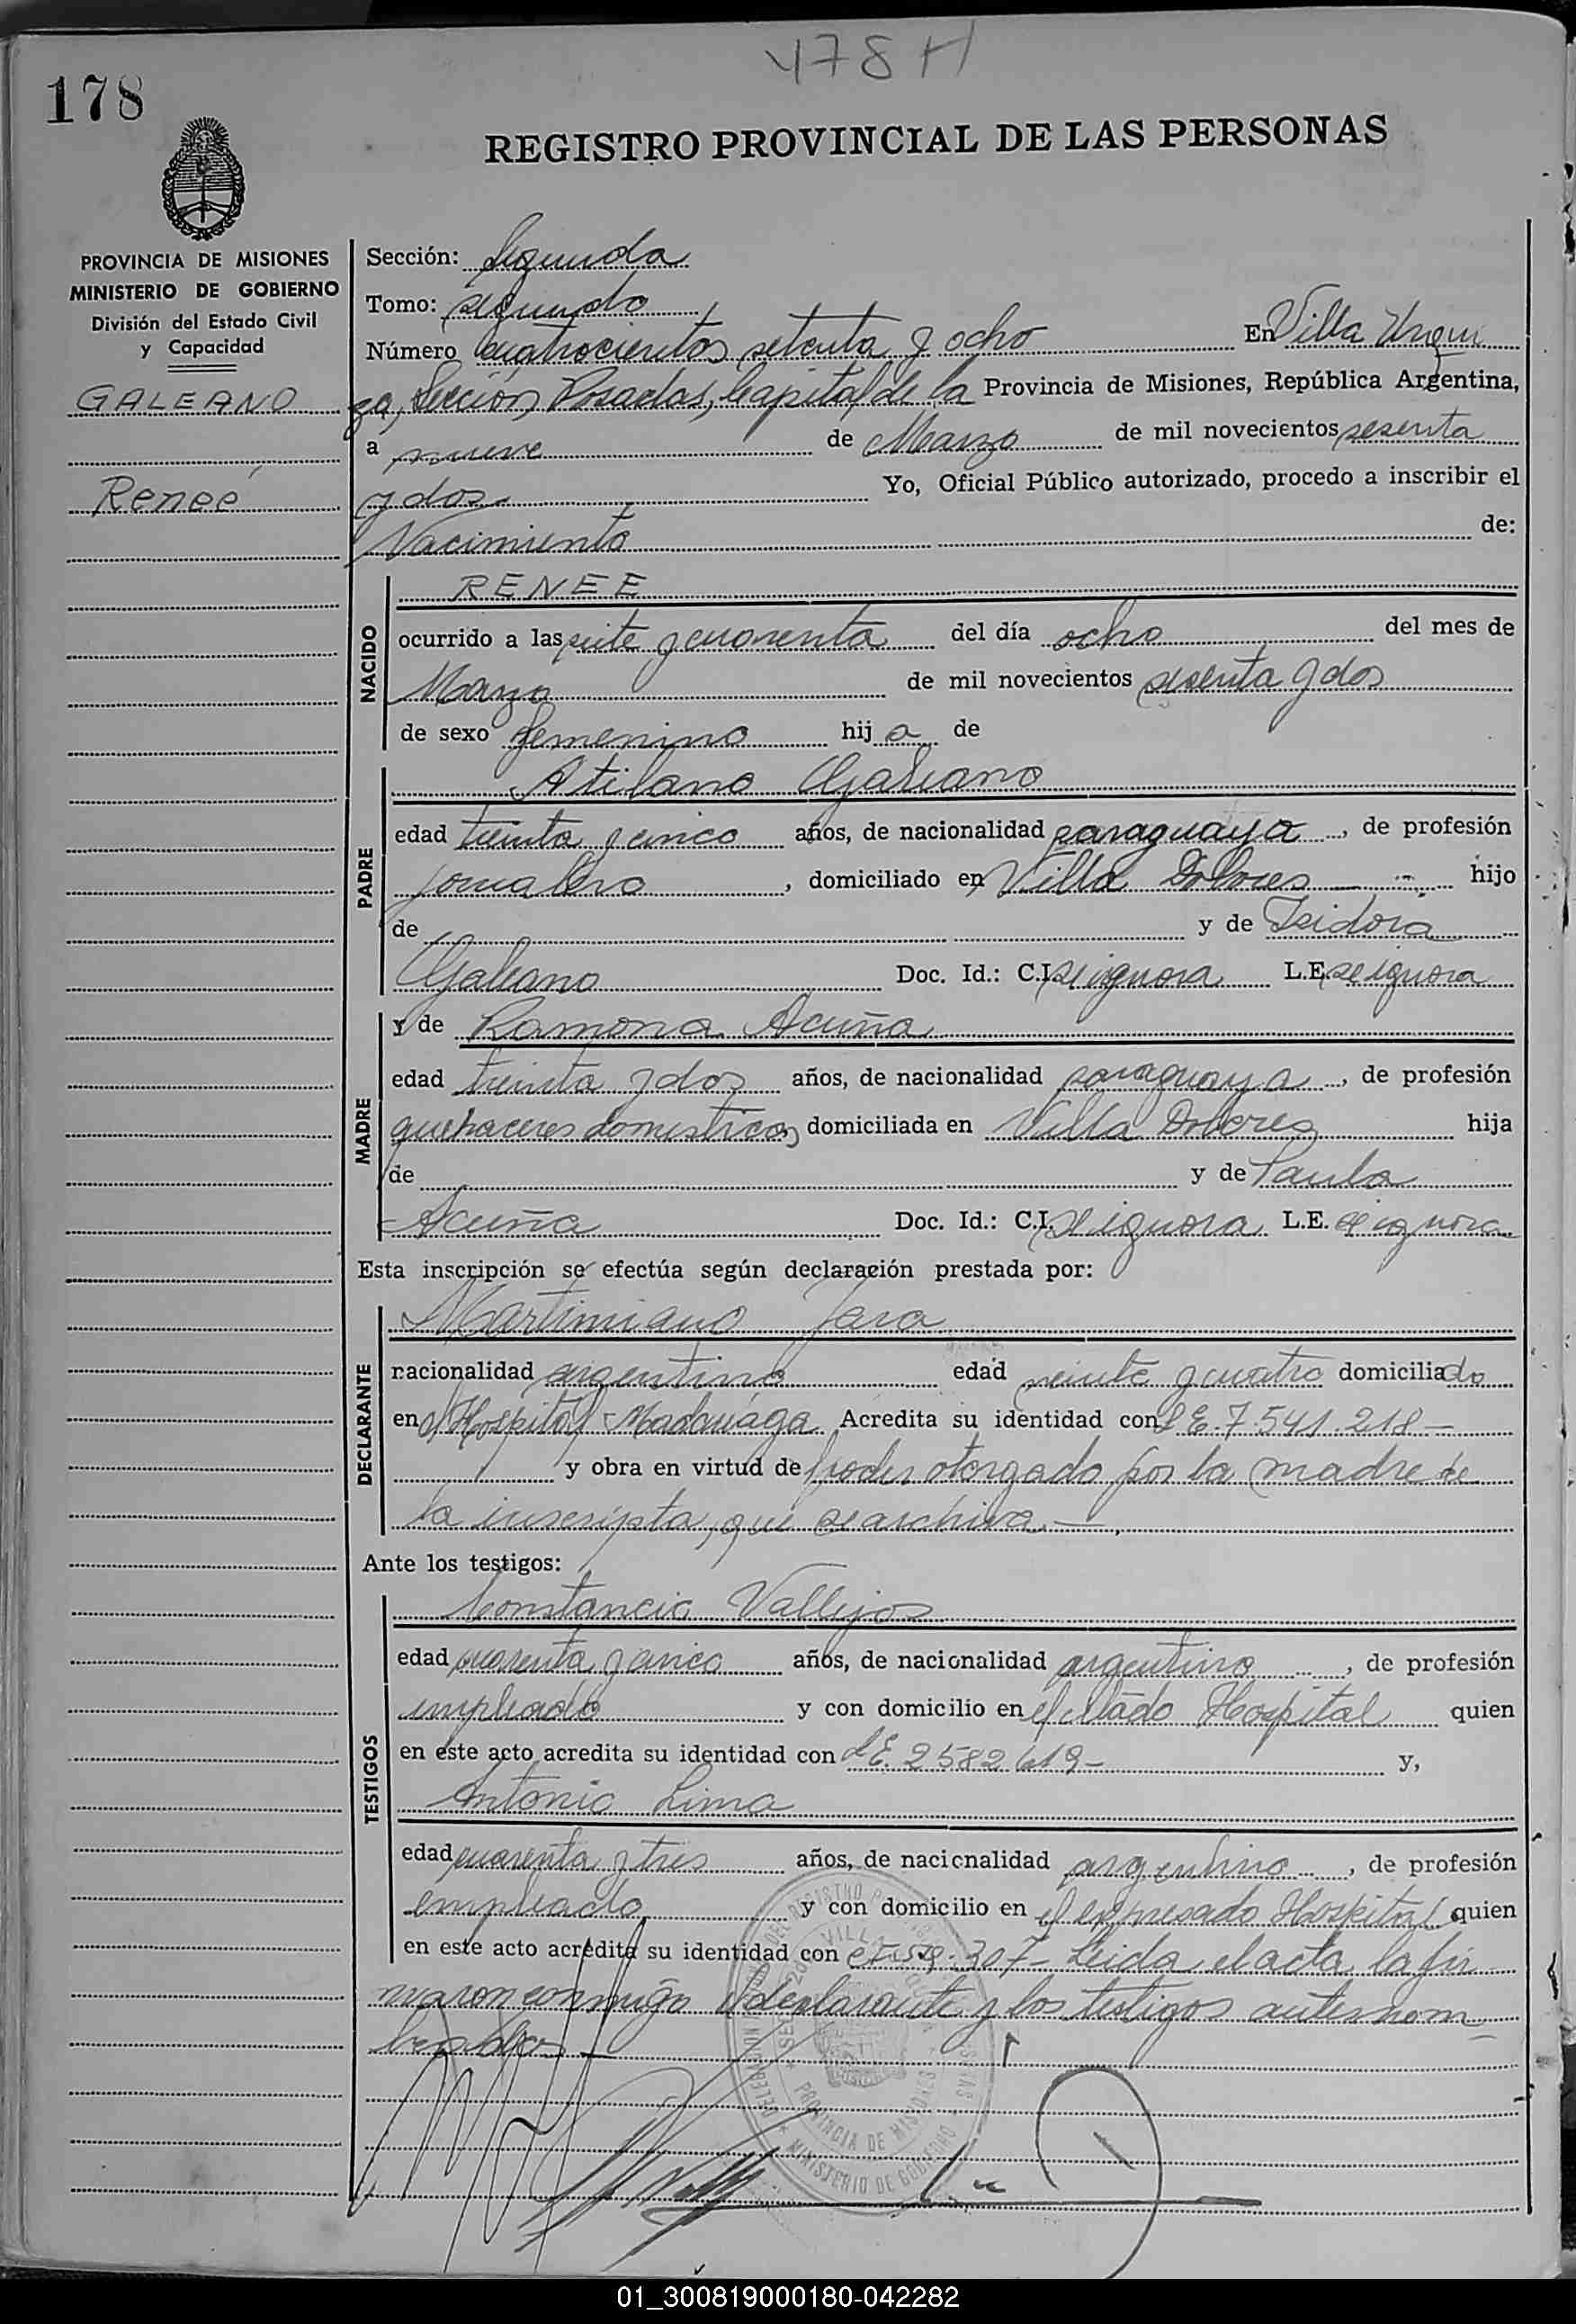 478 H
178
REGISTRO PROVINCIAL DE LAS PERSONAS
PROVINCIA DE MISIONES
MINISTERIO DE GOBIERNO
División del Estado Civil
y Capacidad
GALEANO
Reneé
Sección: Segunda
Tomo: segundo
Número cuatrocientos setenta y ocho En Villa Urqui
za, Sección Posadas, Capital de la Provincia de Misiones, República Argentina,
a nueve de Marzo de mil novecientos sesenta
y dos Yo, Oficial Público autorizado, procedo a inscribir el
Nacimiento de:
NACIDO
RENEE
ocurrido a las siete y cuarenta del día ocho del mes de
Marzo de mil novecientos sesenta y dos
de sexo femenino hija de
PADRE
Atilano Galeano
edad treinta y cinco años, de nacionalidad paraguaya, de profesión
jornalero, domiciliado en Villa Dolores hijo
de y de Isidora
Galeano Doc. Id.: C.I. se ignora L.E. se ignora
MADRE
y de Ramona Acuña
edad treinta y dos años, de nacionalidad paraguaya, de profesión
quehaceres domesticos, domiciliada en Villa Dolores hija
de y de Paula
Acuña Doc. Id.: C.I. se ignora L.E. se ignora
Esta inscripción se efectúa según declaración prestada por:
DECLARANTE
Martimiano Jara
nacionalidad argentina edad veinte y cuatro domiciliado
en el Hospital Madariaga Acredita su identidad con L E. 7.541.218-
y obra en virtud de poder otorgado por la madre de
la inscripta, que se archiva.-
Ante los testigos:
TESTIGOS
Constancio Vallejos
edad cuarenta y cinco años, de nacionalidad argentino, de profesión
empleado y con domicilio en el citado Hospital quien
en este acto acredita su identidad con L E. 2582 619- y,
Antonio Lima
edad cuarenta y tres años, de nacionalidad argentino, de profesión
empleado y con domicilio en el expresado Hospital quien
en este acto acredita su identidad con Leida el acta la fir
maron conmigo el declarante y los testigos antesnom
brados.-
PROVINCIA DE MISIONES
MINISTERIO DE GOBIERNO
01_300819000180-042282